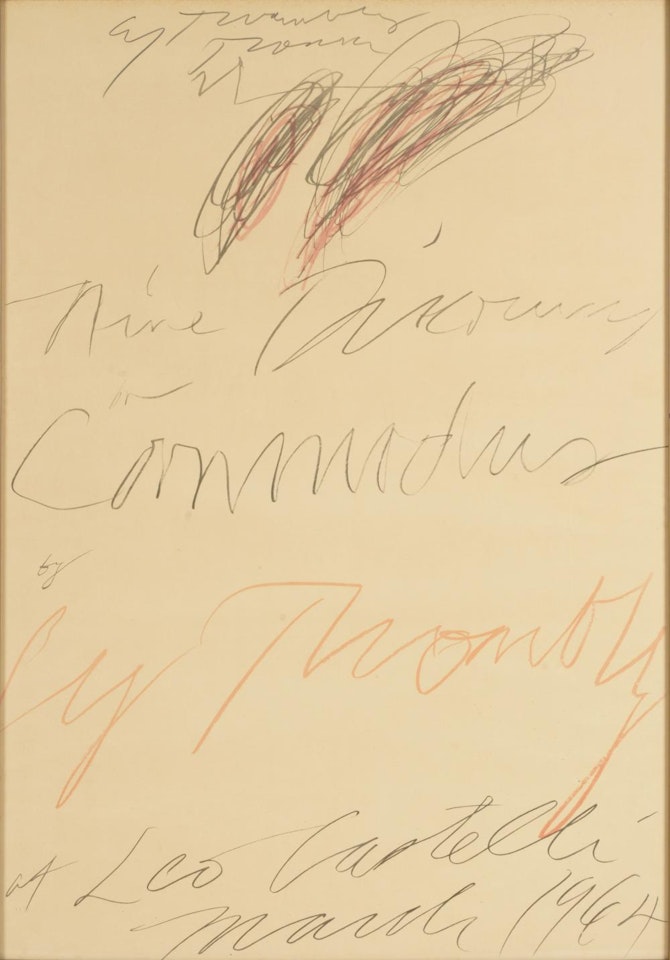 Cy Twombly
Roma
Nine Discourses
on
Commodus
by
Cy Twombly
at Leo Castelli
March 1964